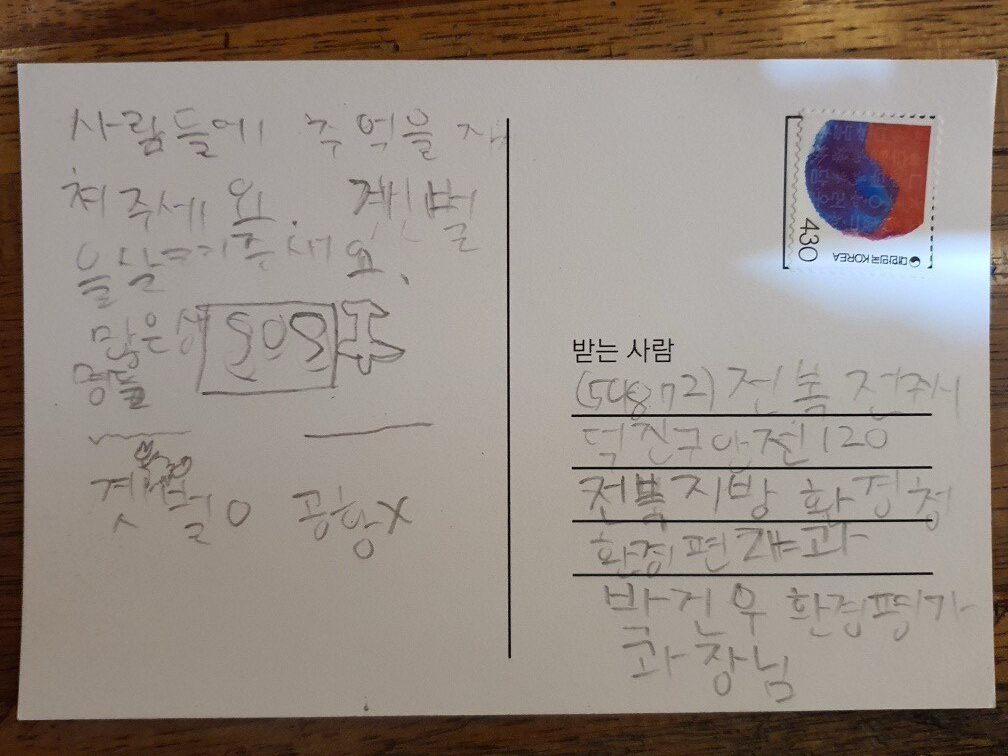 사람들에 추억을 지
켜주세요. 갯벌
을살려주세요.
많은생
명들
SOS
갯벌O 공항X
430
대한민국 KOREA
받는 사람
(54872) 전북 전주시
덕진구안전120
전북지방 환경청
환경편개과
박건우 환경평가
과장님